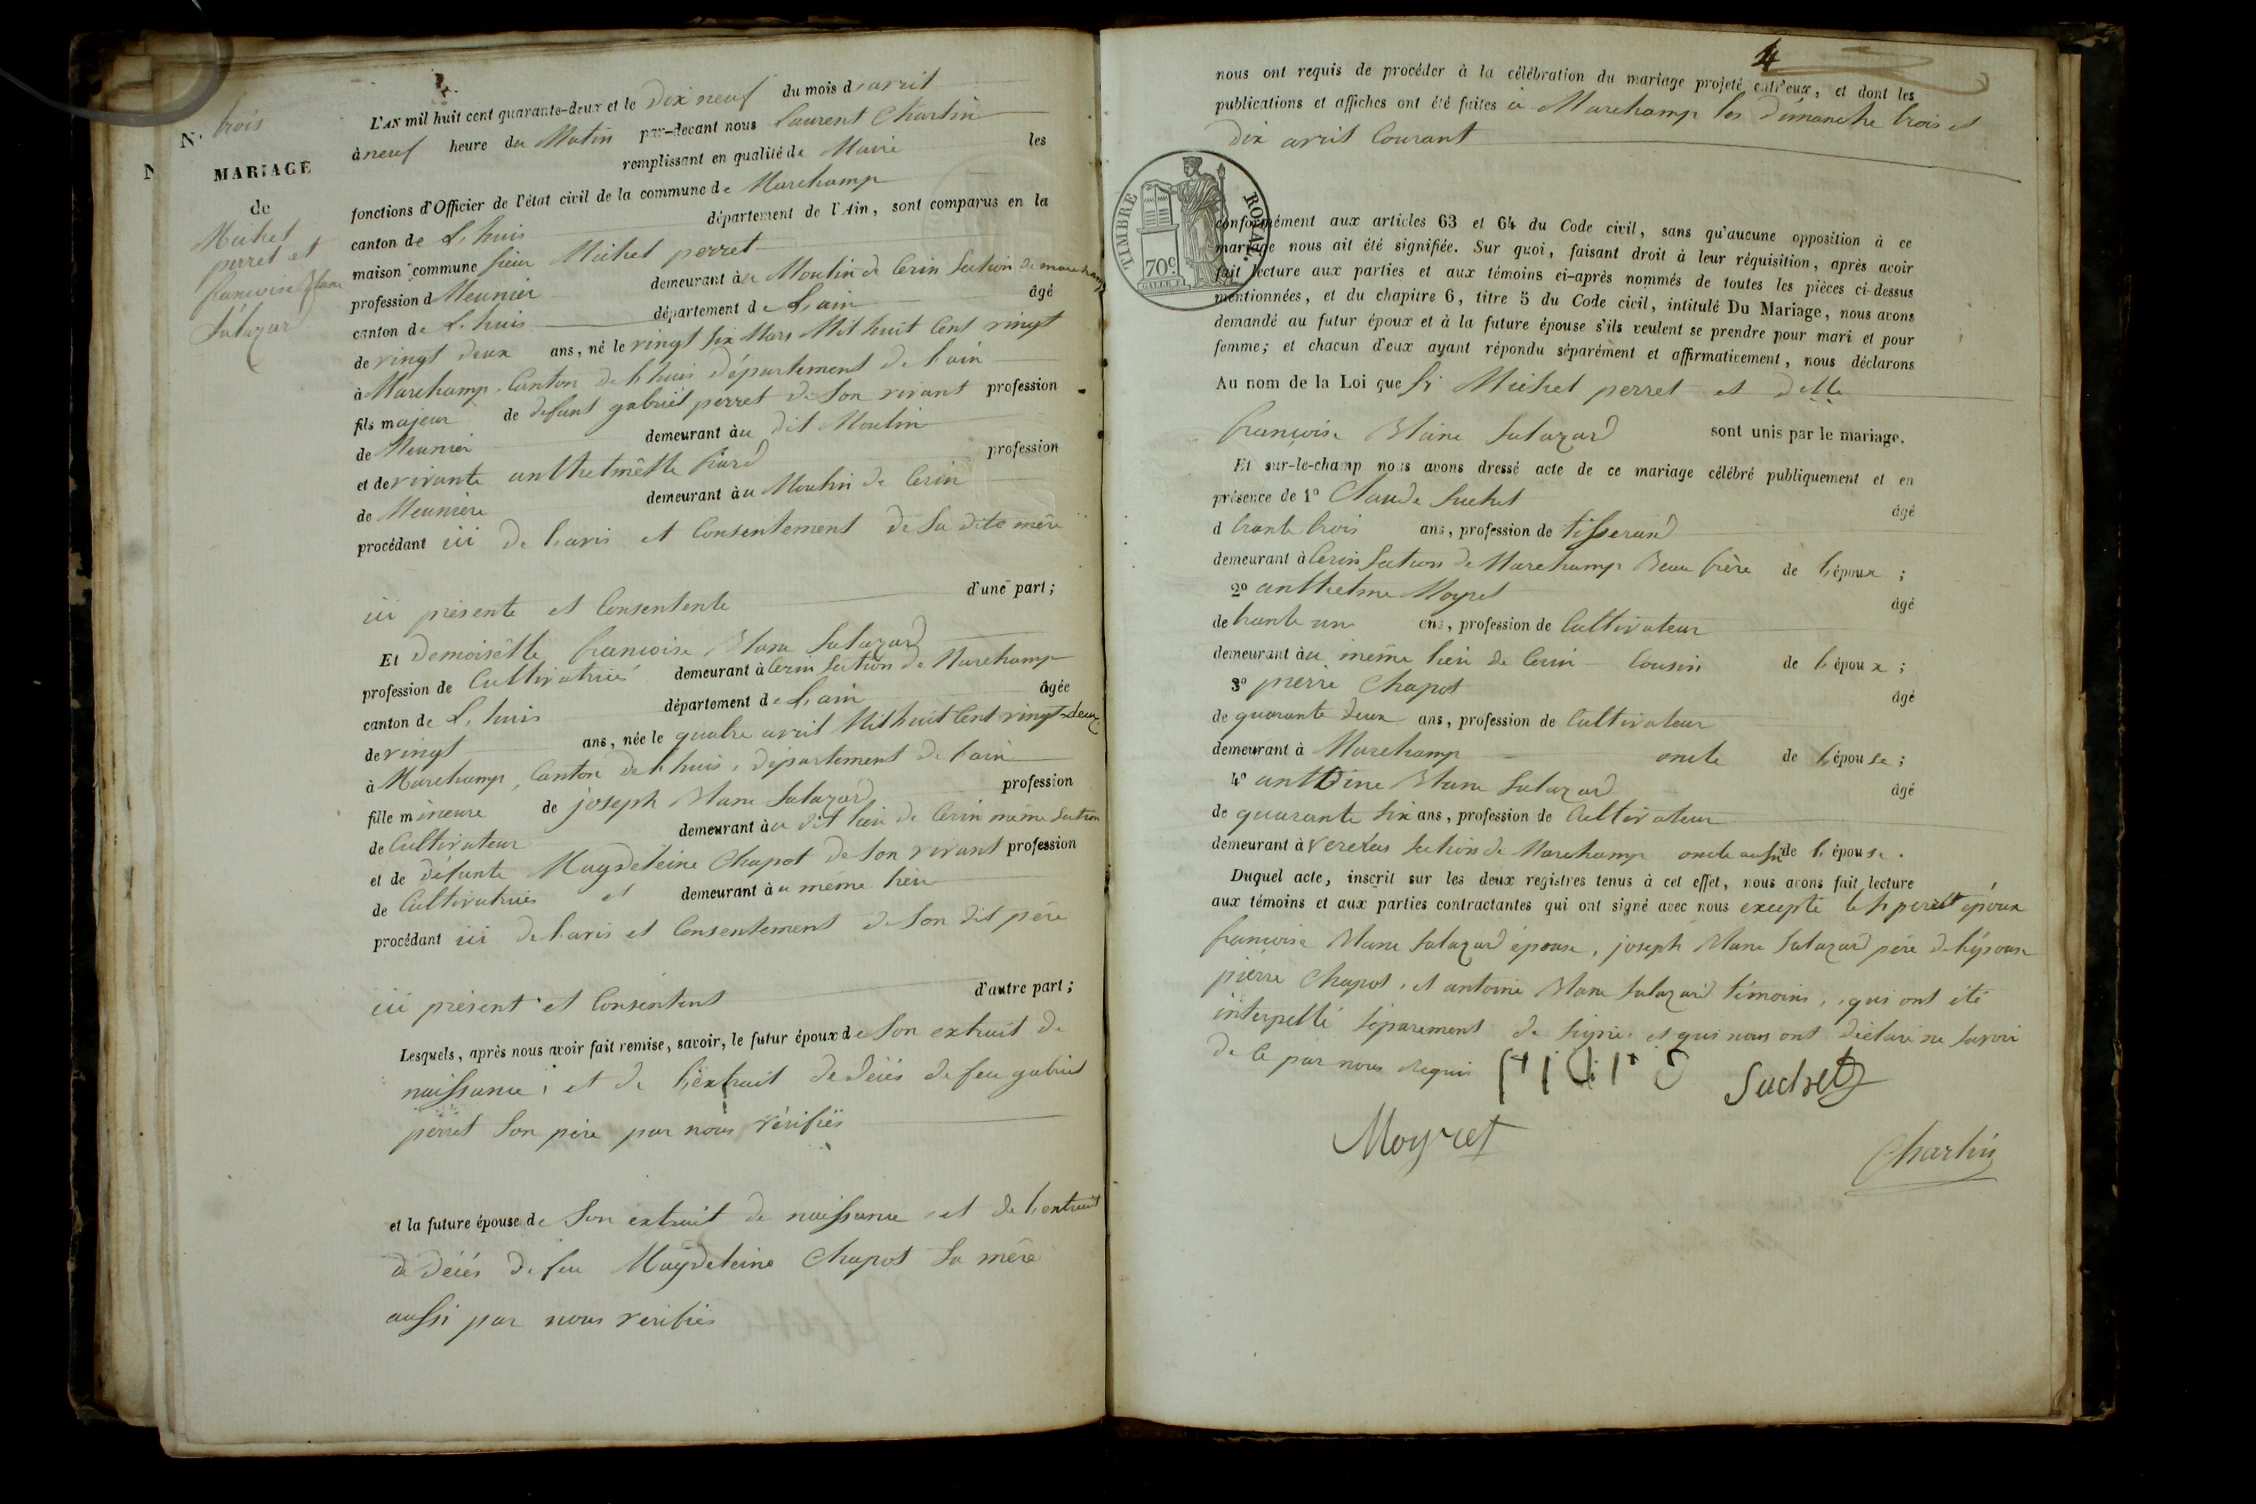 N. trois
MARIAGE
de
Michel
perret et
francoise Blanc
Salazard
L'AN mil huit cent quarante-deux et le Dix neuf du mois d'avril
à neuf heure du Matin par-devant nous Laurent Charlin
remplissant en qualité de Maire les
fonctions d'Officier de l'état civil de la commune de Marchamp
canton de L. huis département de l'Ain, sont comparus en la
maison commune Sieur Michel perret
profession d Meunier demeurant au Moulin de Cerin Section de marchamp
canton de L. huis département de L'ain âgé
de vingt deux ans, né le vingt six Mars Mil huit Cent vingt
à Marchamp, Canton de L huis département de L'ain
fils majeur de defunt gabriel perret de Son vivant profession
de Meunier demeurant au dit Moulin
et de vivante anthelmette profession
de Meunière demeurant au Moulin de Cerin
procédant ici de L'avis et Consentement de Sa dite mère
ici présente et Consentente d'une part;
Et Demoisélle francoise Blanc Salazard
profession de Cultivatrice demeurant à Cerin Section de Marchamp
canton de L. huis département de L'ain âgée
de vingt ans, née le quatre avril Mil huit Cent vingt-deux
à Marchamp, Canton de L huis, département de L'ain
fille mineure de joseph Blanc Salazard profession
de Cultivateur demeurant au dit lieu de Cerin même Section
et de défunte Magdeleine Chapot de Son vivant profession
de Cultivatrice et demeurant au même lieu
procédant ici de L'avis et Consentement de Son dit père
ici présent et Consentent d'autre part;
Lesquels, après nous avoir fait remise, savoir, le futur époux de Son extrait de
naissance, et de L'extrait de décés de feu gabriel
perret Son père par nous vérifiés
et la future épouse de Son extrait de naissance et de L'extrait
de décés de feu Magdeleine Chapot Sa mère
aussi par nous verifiés
4
nous ont requis de procéder à la célébration du mariage projeté entr'eux, et dont les
publications et affiches ont été faites à Marchamp les dimanche trois et
Dix avril Courant
TIMBRE ROYAL.
70c.
conformément aux articles 63 et 64 du Code civil, sans qu'aucune opposition à ce
mariage nous ait été signifiée. Sur quoi, faisant droit à leur réquisition, après avoir
fait lecture aux parties et aux témoins ci-après nommés de toutes les pièces ci-dessus
mentionnées, et du chapitre 6, titre 5 du Code civil, intitulé Du Mariage, nous avons
demandé au futur époux et à la future épouse s'ils veulent se prendre pour mari et pour
femme; et chacun d'eux ayant répondu séparément et affirmativement, nous déclarons
Au nom de la Loi que Sr Michel perret et Delle
francoise Blanc Salazard sont unis par le mariage.
Et sur-le-champ nous avons dressé acte de ce mariage célébré publiquement et en
présence de 1º Claude Suchet âgé
d trante trois ans, profession de tisserand
demeurant à Cerin Section de Marchamp Beau frère de L'époux ;
2º anthelme Moyret âgé
de trante un ans, profession de Cultivateur
demeurant au même lieu de Cerin Cousin de L'époux ;
3º pierre Chapot âgé
de quarante deux ans, profession de Cultivateur
demeurant à Marchamp oncle de L'épouse ;
4º anttoine Blanc Salazard âgé
de quarante Six ans, profession de Cultivateur
demeurant à Section de Marchamp oncle aussi de L'épouse.
Duquel acte, inscrit sur les deux registres tenus à cet effet, nous avons fait lecture
aux témoins et aux parties contractantes qui ont signé avec nous excepté le Sr perret époux
francoise Blanc Salazard épouse, joseph Blanc Salazard père de L'épouse
pierre Chapot, et antoine Blanc Salazard témoins, qui ont été
interpellé Séparement de Signer et qui nous ont déclaré ne Savoir
de Ce par nous requis Suchet
Moyret
Charlin